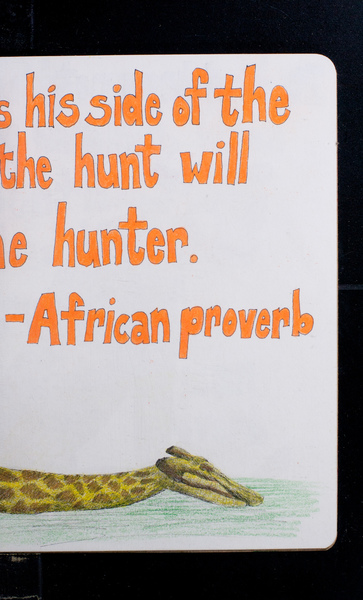 s his side of the
the hunt will
he hunter.
-African proverb